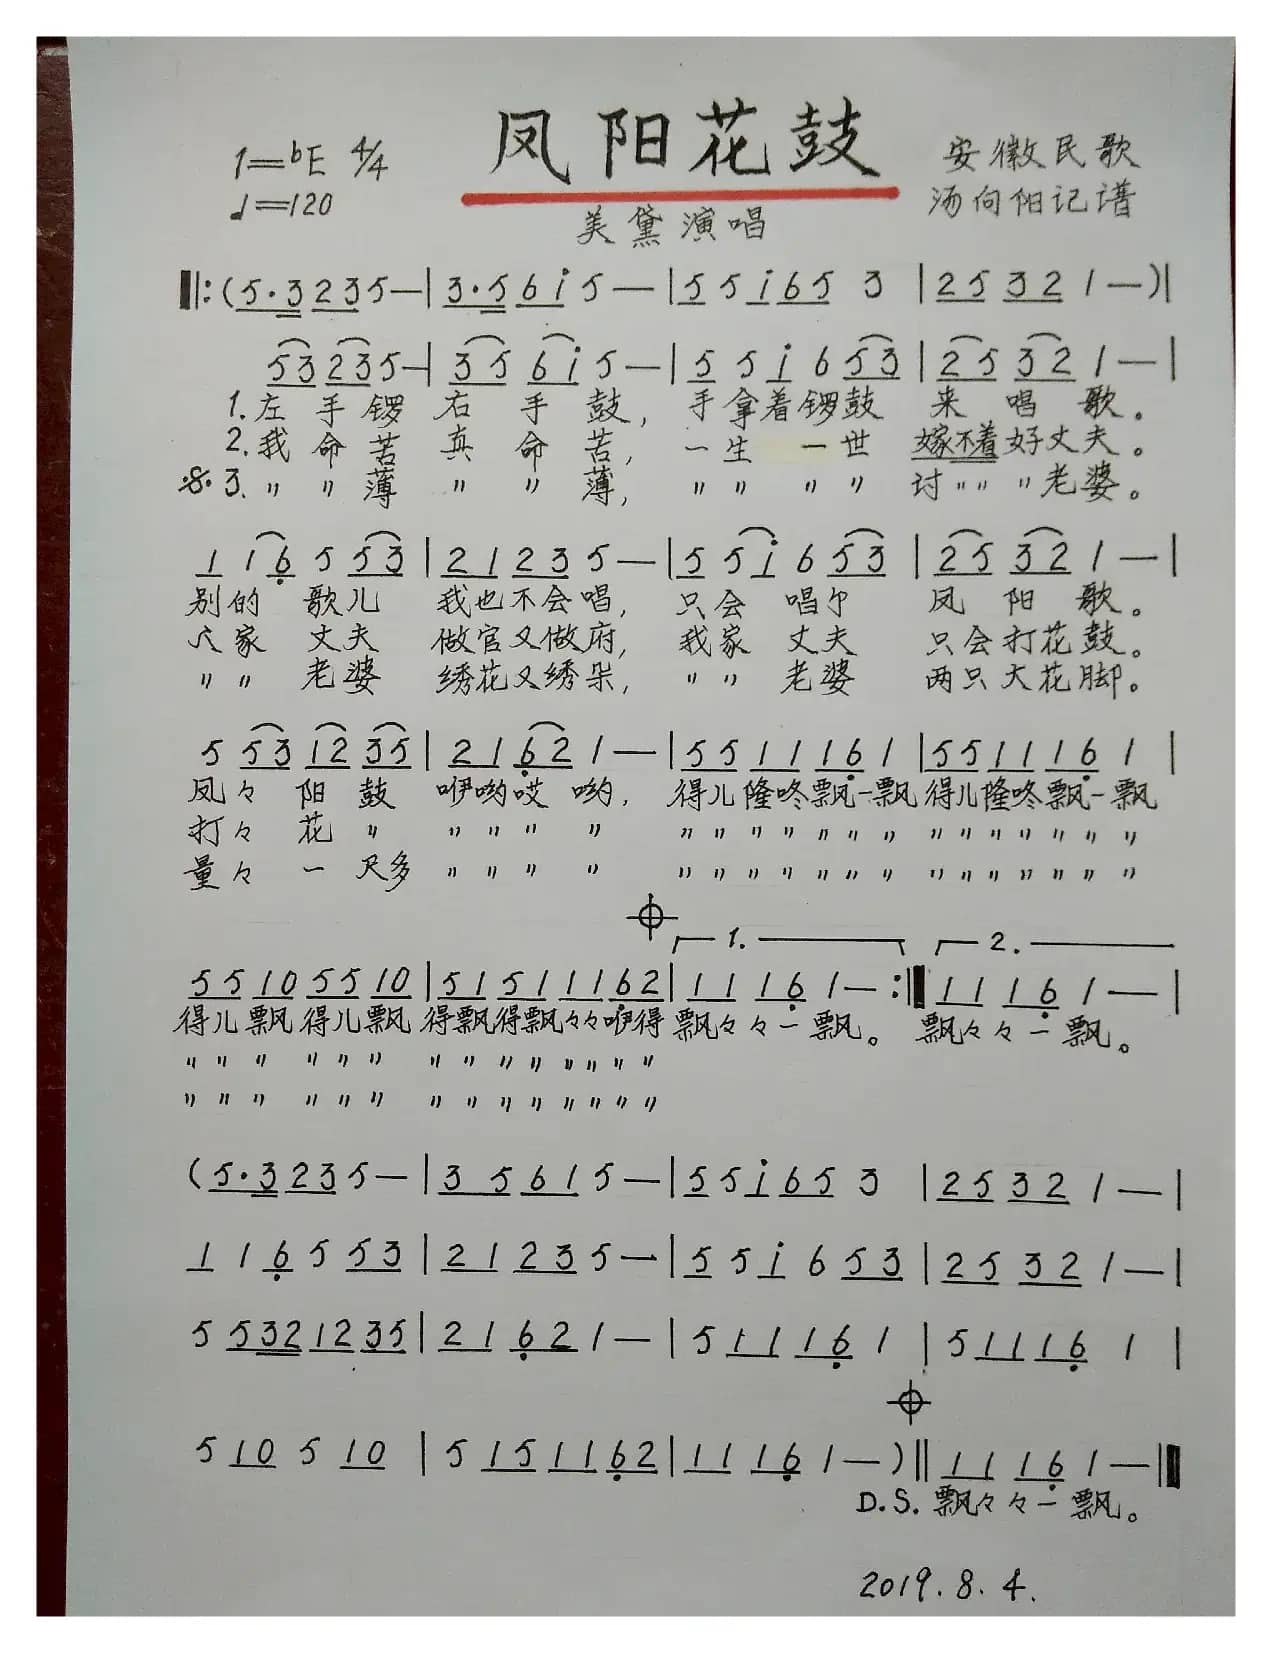 凤阳花鼓
1=bE 4/4
安徽民歌
♩=120
汤向阳记谱
美黛演唱
‖:(5·3 2 3 5 —|3·5 6 i 5 —|5 5 i 6 5 3|2 5 3 2 1 —)|
5 3 2 3 5 —|3 5 6 i 5 —|5 5 i 6 5 3|2 5 3 2 1 —|
1.左手锣 右手鼓，手拿着锣鼓 来唱歌。
2.我命苦 真命苦，一生一世 嫁不着好丈夫。
𝄋 3.〃〃薄 〃〃薄，〃〃〃〃 讨〃〃〃老婆。
1 1 6 5 5 3|2 1 2 3 5 —|5 5 i 6 5 3|2 5 3 2 1 —|
别的 歌儿 我也不会唱，只会 唱个 凤阳歌。
人家 丈夫 做官又做府，我家 丈夫 只会打花鼓。
〃〃 老婆 绣花又绣朵，〃〃 老婆 两只大花脚。
5 5 3 1 2 3 5|2 1 6 2 1 —|5 5 1 1 1 6 1|5 5 1 1 1 6 1|
凤々 阳鼓 咿哟哎哟，得儿隆咚飘一飘 得儿隆咚飘一飘
打々 花〃 〃〃〃〃 〃〃〃〃〃〃〃 〃〃〃〃〃〃〃
量々 一尺多 〃〃〃〃 〃〃〃〃〃〃〃 〃〃〃〃〃〃〃
1. 2.
5 5 1 0 5 5 1 0|5 1 5 1 1 1 6 2|1 1 1 6 1 —:‖1 1 1 6 1 —|
得儿飘 得儿飘 得飘得飘々々咿得 飘々々一飘。飘々々一飘。
〃〃〃 〃〃〃 〃〃〃〃〃〃〃〃
〃〃〃 〃〃〃 〃〃〃〃〃〃〃〃
(5·3 2 3 5 —|3 5 6 1 5 —|5 5 i 6 5 3|2 5 3 2 1 —|
1 1 6 5 5 3|2 1 2 3 5 —|5 5 i 6 5 3|2 5 3 2 1 —|
5 5 3 2 1 2 3 5|2 1 6 2 1 —|5 1 1 1 6 1|5 1 1 1 6 1|
5 1 0 5 1 0|5 1 5 1 1 6 2|1 1 1 6 1 —)‖1 1 1 6 1 —‖
D.S. 飘々々一飘。
2019.8.4.